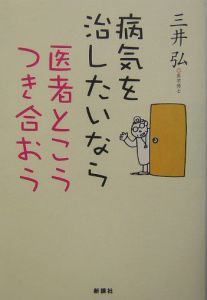 三井弘
医学博士
病気を
治したいなら
医者とこう
つき合おう
新講社